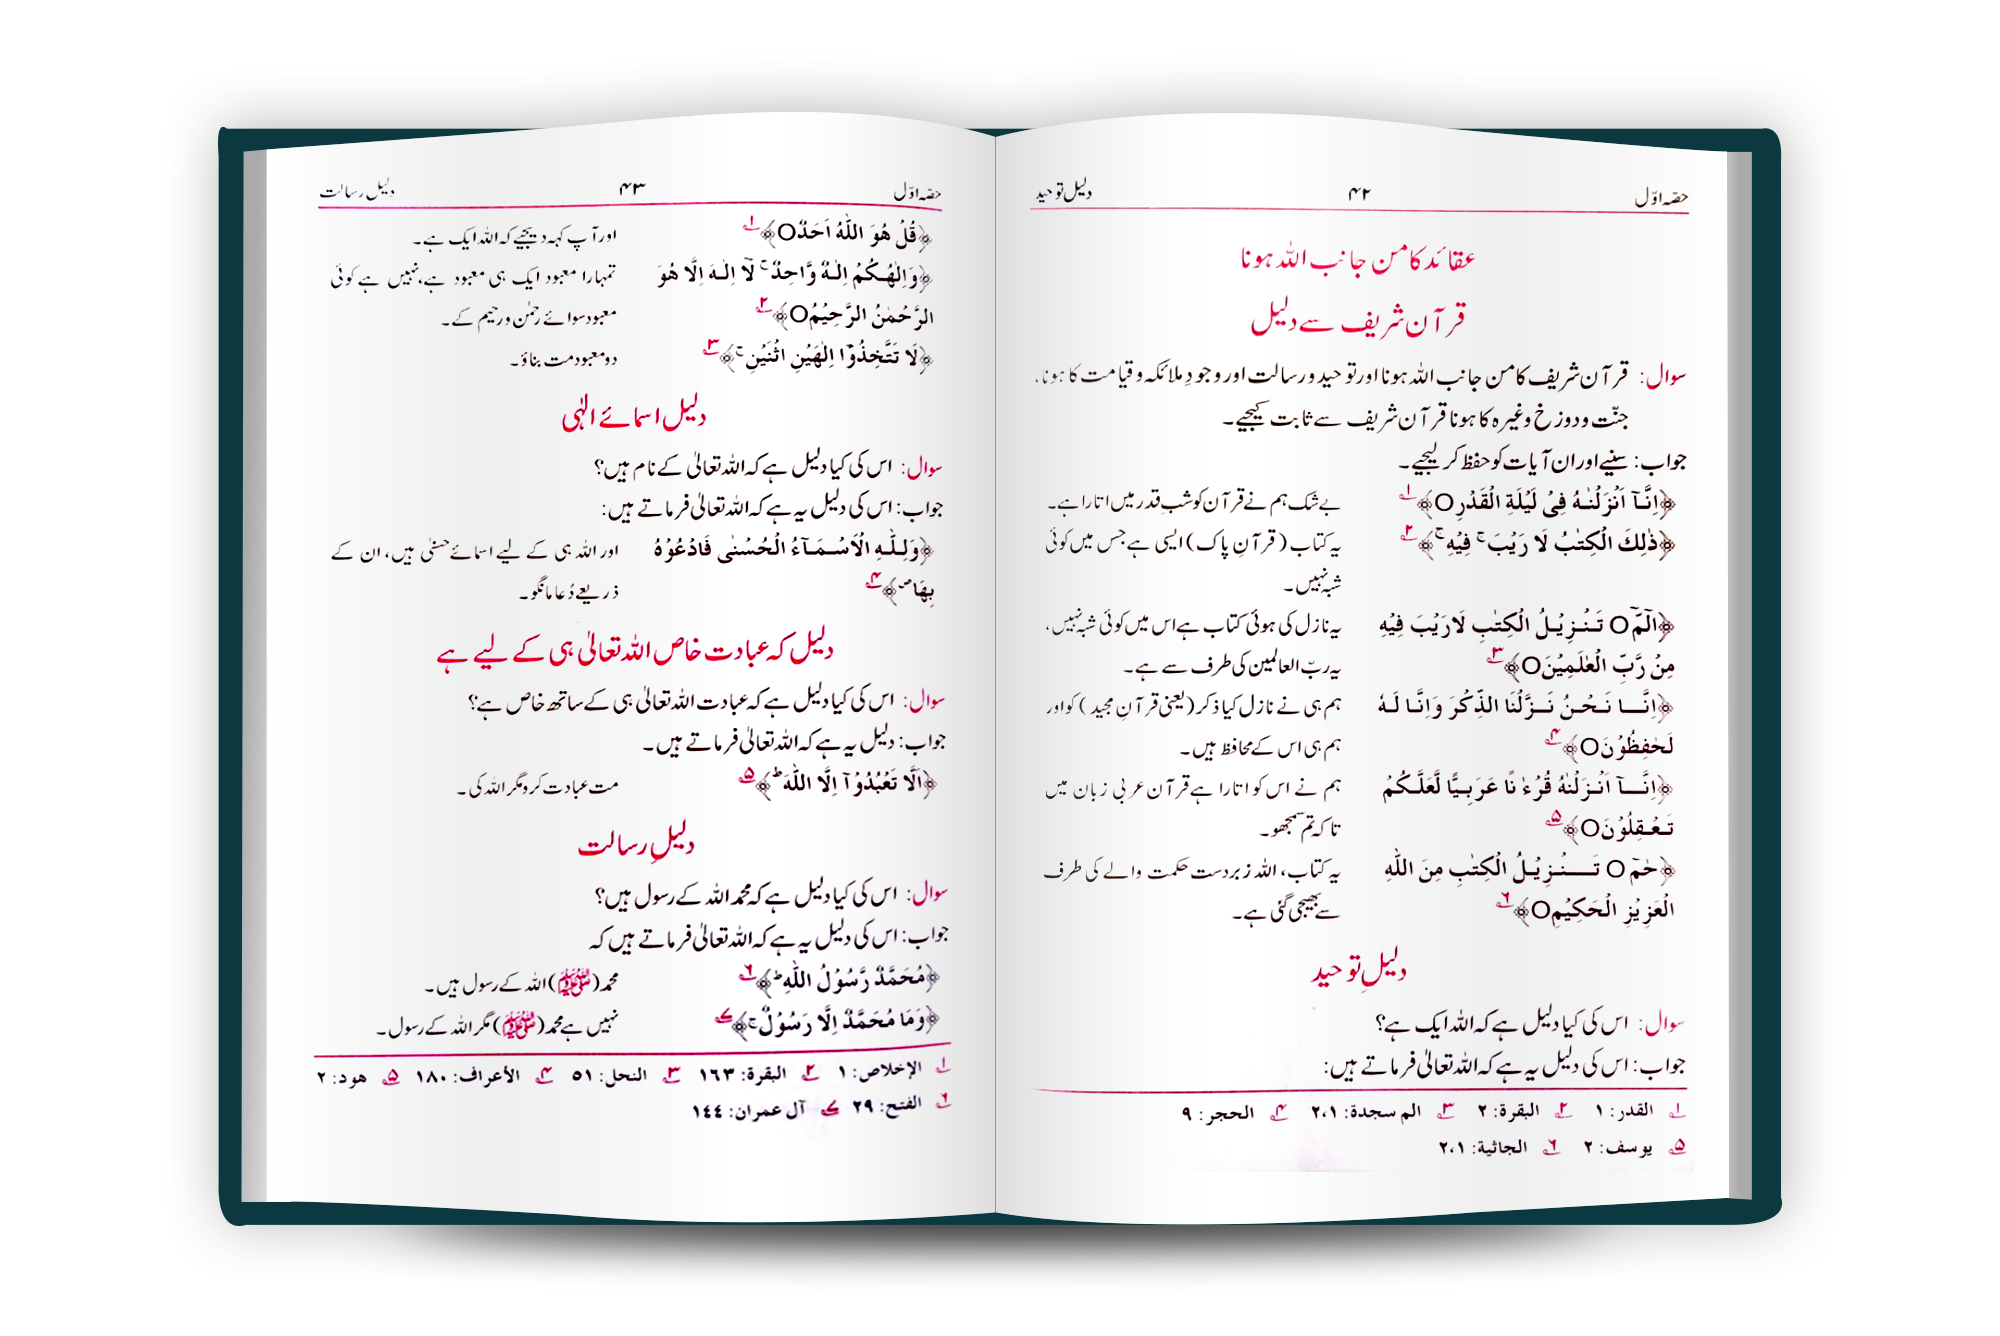 حصّہ اوّل ۴۲ دلیل توحید
عقائد کا من جانب اللہ ہونا
قرآن شریف سے دلیل
سوال: قرآن شریف کا من جانب اللہ ہونا اور توحید و رسالت اور وجودِ ملائکہ و قیامت کا ہونا،
جنّت و دوزخ وغیرہ کا ہونا قرآن شریف سے ثابت کیجیے۔
جواب: سنیے اور ان آیات کو حفظ کر لیجیے۔
﴿اِنَّآ اَنْزَلْنٰهُ فِیْ لَیْلَةِ الْقَدْرِO﴾ ۱ بے شک ہم نے قرآن کو شب قدر میں اتارا ہے۔
﴿ذٰلِكَ الْكِتٰبُ لَا رَیْبَ ۚ فِیْهِ ۚ﴾ ۲ یہ کتاب (قرآنِ پاک) ایسی ہے جس میں کوئی
شبہ نہیں۔
﴿الٓمّٓO تَنْزِیْلُ الْكِتٰبِ لَارَیْبَ فِیْهِ یہ نازل کی ہوئی کتاب ہے اس میں کوئی شبہ نہیں،
مِنْ رَّبِّ الْعٰلَمِیْنَO﴾ ۳ یہ ربّ العالمین کی طرف سے ہے۔
﴿اِنَّا نَحْنُ نَزَّلْنَا الذِّكْرَ وَاِنَّا لَهٗ ہم ہی نے نازل کیا ذکر (یعنی قرآنِ مجید) کو اور
لَحٰفِظُوْنَO﴾ ۴ ہم ہی اس کے محافظ ہیں۔
﴿اِنَّآ اَنْزَلْنٰهُ قُرْءٰنًا عَرَبِیًّا لَّعَلَّكُمْ ہم نے اس کو اتارا ہے قرآن عربی زبان میں
تَعْقِلُوْنَO﴾ ۵ تاکہ تم سمجھو۔
﴿حٰمٓ O تَنْزِیْلُ الْكِتٰبِ مِنَ اللّٰهِ یہ کتاب، اللہ زبردست حکمت والے کی طرف
الْعَزِیْزِ الْحَكِیْمِO﴾ ۶ سے بھیجی گئی ہے۔
دلیلِ توحید
سوال: اس کی کیا دلیل ہے کہ اللہ ایک ہے؟
جواب: اس کی دلیل یہ ہے کہ اللہ تعالیٰ فرماتے ہیں:
۱ القدر: ۱ ۲ البقرة: ۲ ۳ الم سجدة: ۲،۱ ۴ الحجر: ۹
۵ یوسف: ۲ ۶ الجاثیة: ۲،۱
حصّہ اوّل ۴۳ دلیل رسالت
﴿قُلْ هُوَ اللّٰهُ اَحَدٌO﴾ ۱ اور آپ کہہ دیجیے کہ اللہ ایک ہے۔
﴿وَاِلٰهُكُمْ اِلٰهٌ وَّاحِدٌ ۚ لَآ اِلٰهَ اِلَّا هُوَ تمہارا معبود ایک ہی معبود ہے، نہیں ہے کوئی
الرَّحْمٰنُ الرَّحِیْمُO﴾ ۲ معبود سوائے رحمٰن و رحیم کے۔
﴿لَا تَتَّخِذُوْٓا اِلٰهَیْنِ اثْنَیْنِ ۚ﴾ ۳ دو معبود مت بناؤ۔
دلیل اسمائے الٰہی
سوال: اس کی کیا دلیل ہے کہ اللہ تعالیٰ کے نام ہیں؟
جواب: اس کی دلیل یہ ہے کہ اللہ تعالیٰ فرماتے ہیں:
﴿وَلِلّٰهِ الْاَسْمَآءُ الْحُسْنٰی فَادْعُوْهُ اور اللہ ہی کے لیے اسمائے حسنٰی ہیں، ان کے
بِهَا ص﴾ ۴ ذریعے دُعا مانگو۔
دلیل کہ عبادت خاص اللہ تعالیٰ ہی کے لیے ہے
سوال: اس کی کیا دلیل ہے کہ عبادت اللہ تعالیٰ ہی کے ساتھ خاص ہے؟
جواب: دلیل یہ ہے کہ اللہ تعالیٰ فرماتے ہیں۔
﴿اَلَّا تَعْبُدُوْٓا اِلَّا اللّٰهَ ؕ﴾ ۵ مت عبادت کرو مگر اللہ کی۔
دلیلِ رسالت
سوال: اس کی کیا دلیل ہے کہ محمد اللہ کے رسول ہیں؟
جواب: اس کی دلیل یہ ہے کہ اللہ تعالیٰ فرماتے ہیں کہ
﴿مُحَمَّدٌ رَّسُوْلُ اللّٰهِ ؕ﴾ ۶ محمد (ﷺ) اللہ کے رسول ہیں۔
﴿وَمَا مُحَمَّدٌ اِلَّا رَسُوْلٌ ۚ﴾ ۷ نہیں ہے محمد (ﷺ) مگر اللہ کے رسول۔
۱ الإخلاص: ۱ ۲ البقرة: ۱۶۳ ۳ النحل: ۵۱ ۴ الأعراف: ۱۸۰ ۵ هود: ۲
۶ الفتح: ۲۹ ۷ آل عمران: ۱٤٤